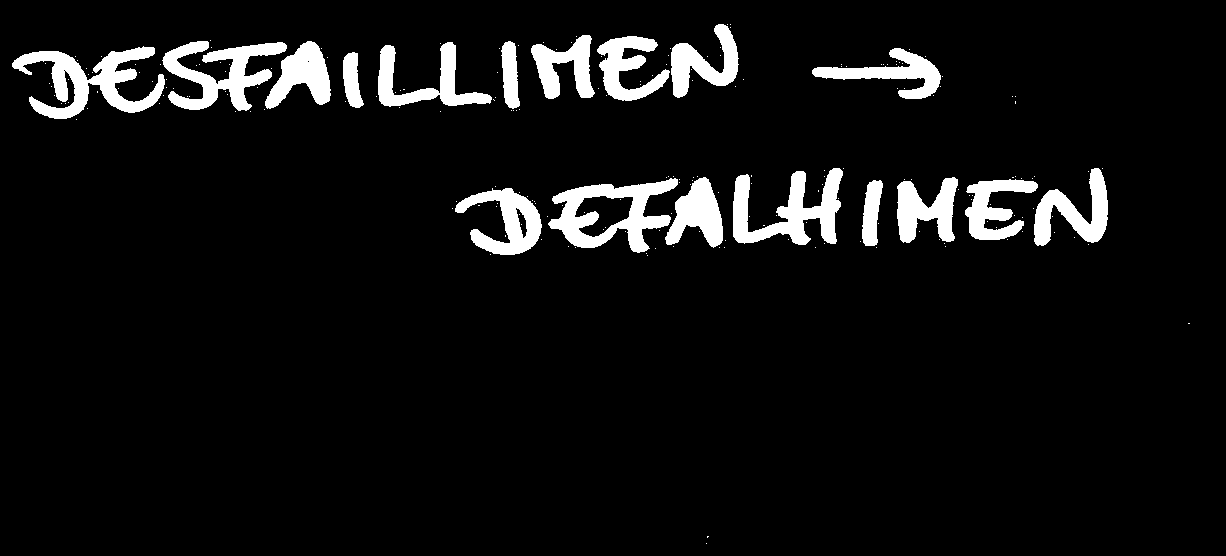 DESFAILLIMEN →
DEFALHIMEN